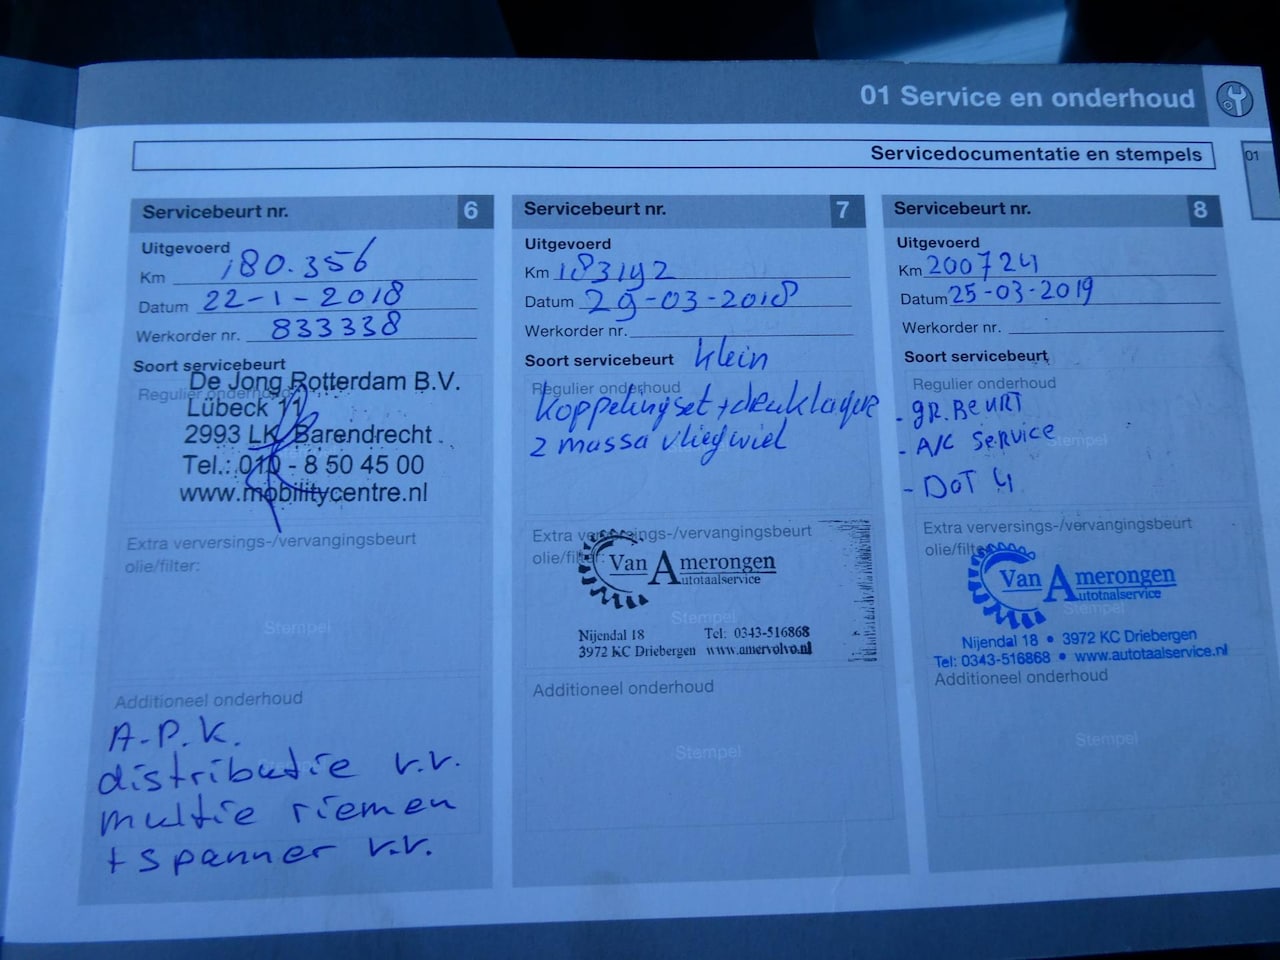 01 Service en onderhoud
Servicedocumentatie en stempels
01
Servicebeurt nr. 6
Uitgevoerd
Km 180.356
Datum 22-1-2018
Werkorder nr. 833338
Soort servicebeurt
Regulier onderhoud
De Jong Rotterdam B.V.
Lübeck 11
2993 LK Barendrecht
Tel.: 010 - 8 50 45 00
www.mobilitycentre.nl
Extra verversings-/vervangingsbeurt
olie/filter:
Stempel
Additioneel onderhoud
A.P.K.
distributie v.v.
multie riemen
+ spanner v.v.
Servicebeurt nr. 7
Uitgevoerd
Km 183192
Datum 29-03-2018
Werkorder nr.
Soort servicebeurt klein
Regulier onderhoud
Koppelingset + druklager
2 massa vliegwiel
Extra verversings-/vervangingsbeurt
olie/filter:
Van Amerongen
Autotaalservice
Stempel
Nijendal 18 Tel: 0343-516868
3972 KC Driebergen www.amervolvo.nl
Additioneel onderhoud
Stempel
Servicebeurt nr. 8
Uitgevoerd
Km 200724
Datum 25-03-2019
Werkorder nr.
Soort servicebeurt
Regulier onderhoud
- GR. BEURT
- A/C Service
Stempel
- DOT 4
Extra verversings-/vervangingsbeurt
olie/filter:
Van Amerongen
Autotaalservice
Stempel
Nijendal 18 • 3972 KC Driebergen
Tel: 0343-516868 • www.autotaalservice.nl
Additioneel onderhoud
Stempel